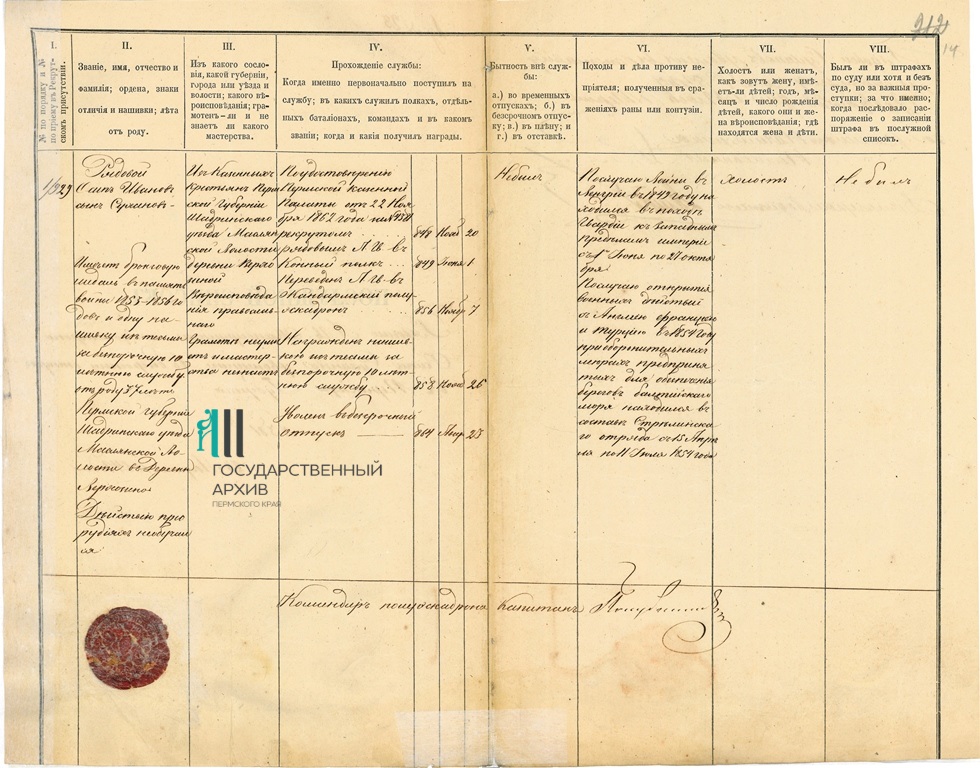 212
14
I.
№ по порядку и №
по приему въ Рекрут-
скомъ присутствіи.
II.
Званіе, имя, отчество и
фамилія; ордена, знаки
отличія и нашивки; лѣта
отъ роду.
III.
Изъ какого сосло-
вія, какой губерніи,
города или уѣзда и
волости; какого вѣ-
роисповѣданія; гра-
мотенъ-ли и не
знаетъ ли какого
мастерства.
IV.
Прохожденіе службы:
Когда именно первоначально поступилъ на
службу; въ какихъ служилъ полкахъ, отдѣль-
ныхъ баталіонахъ, командахъ и въ какомъ
званіи; когда и какія получилъ награды.
V.
Бытность внѣ служ-
бы:
а.) во временныхъ
отпускахъ; б.) въ
безсрочномъ отпус-
ку; в.) въ плѣну; и
г.) въ отставкѣ.
VI.
Походы и дѣла противу не-
пріятеля; полученныя въ сра-
женіяхъ раны или контузіи.
VII.
Холостъ или женатъ,
какъ зовутъ жену, имѣ-
етъ-ли дѣтей; годъ, мѣ-
сяцъ и число рожденія
дѣтей, какого они и же-
на вѣроисповѣданія; гдѣ
находятся жена и дѣти.
VIII.
Былъ ли въ штрафахъ
по суду или хотя и безъ
суда, но за важныя про-
ступки; за что именно;
когда послѣдовало рас-
поряженіе о записаніи
штрафа въ послужной
списокъ.
29
Рядовой
Иванов
сынъ Сухановъ
Имѣетъ бронзовую
медаль въ память
войны 1853-1856 го
довъ и одну на
шивку изъ тесьмы
за безпорочную 10
лѣтнюю службу
отъ роду 37 лѣтъ
Пермской Губерніи
Шадринскаго уѣзда
Маслянской Во
лости въ Деревне
Изъ Казенныхъ
Крестьянъ Перм
ской Губерніи
Шадринскаго
уѣзда Маслян
ской Волости
деревни
Вѣроисповѣда
нія православ
наго
Грамоты неуме
етъ и мастер
ства незнаетъ
По удостовѣренію
Пермской Казенной
Палаты отъ 22 Ноя
бря 1862 года за №
рекрутомъ 848 Нояб 20
рядовымъ Л. Гв. въ
Конный полкъ 849 Іюня 1
Переведенъ Л. Гв. въ
Жандармскій полу
эскадронъ 856 Ноябр 7
Награжденъ нашив
кою изъ тесьмы за
безпорочную 10 лѣт
нюю службу 858 Нояб 26
Уволенъ въ безсрочный
отпускъ 864 Апр 25
Небылъ
По случаю войны въ
Венгріи въ 1849 году на
ходился въ походѣ
Гвардіи къ Западнымъ
предѣламъ имперіи
съ 1 Іюня по 27 октя
бря
По случаю открытія
военныхъ дѣйствій
съ Англіею францією
и турціею въ 1854 году
при оборонительныхъ
мѣрахъ предприня
тыхъ для обезпеченія
береговъ балтійскаго
моря находился въ
составѣ Стрѣлинска
го отряда съ 15 Апре
ля по 11 Іюля 1854 года
холостъ
Не былъ
ГОСУДАРСТВЕННЫЙ
АРХИВ
ПЕРМСКОГО КРАЯ
Командиръ полуэскадрона Капитанъ